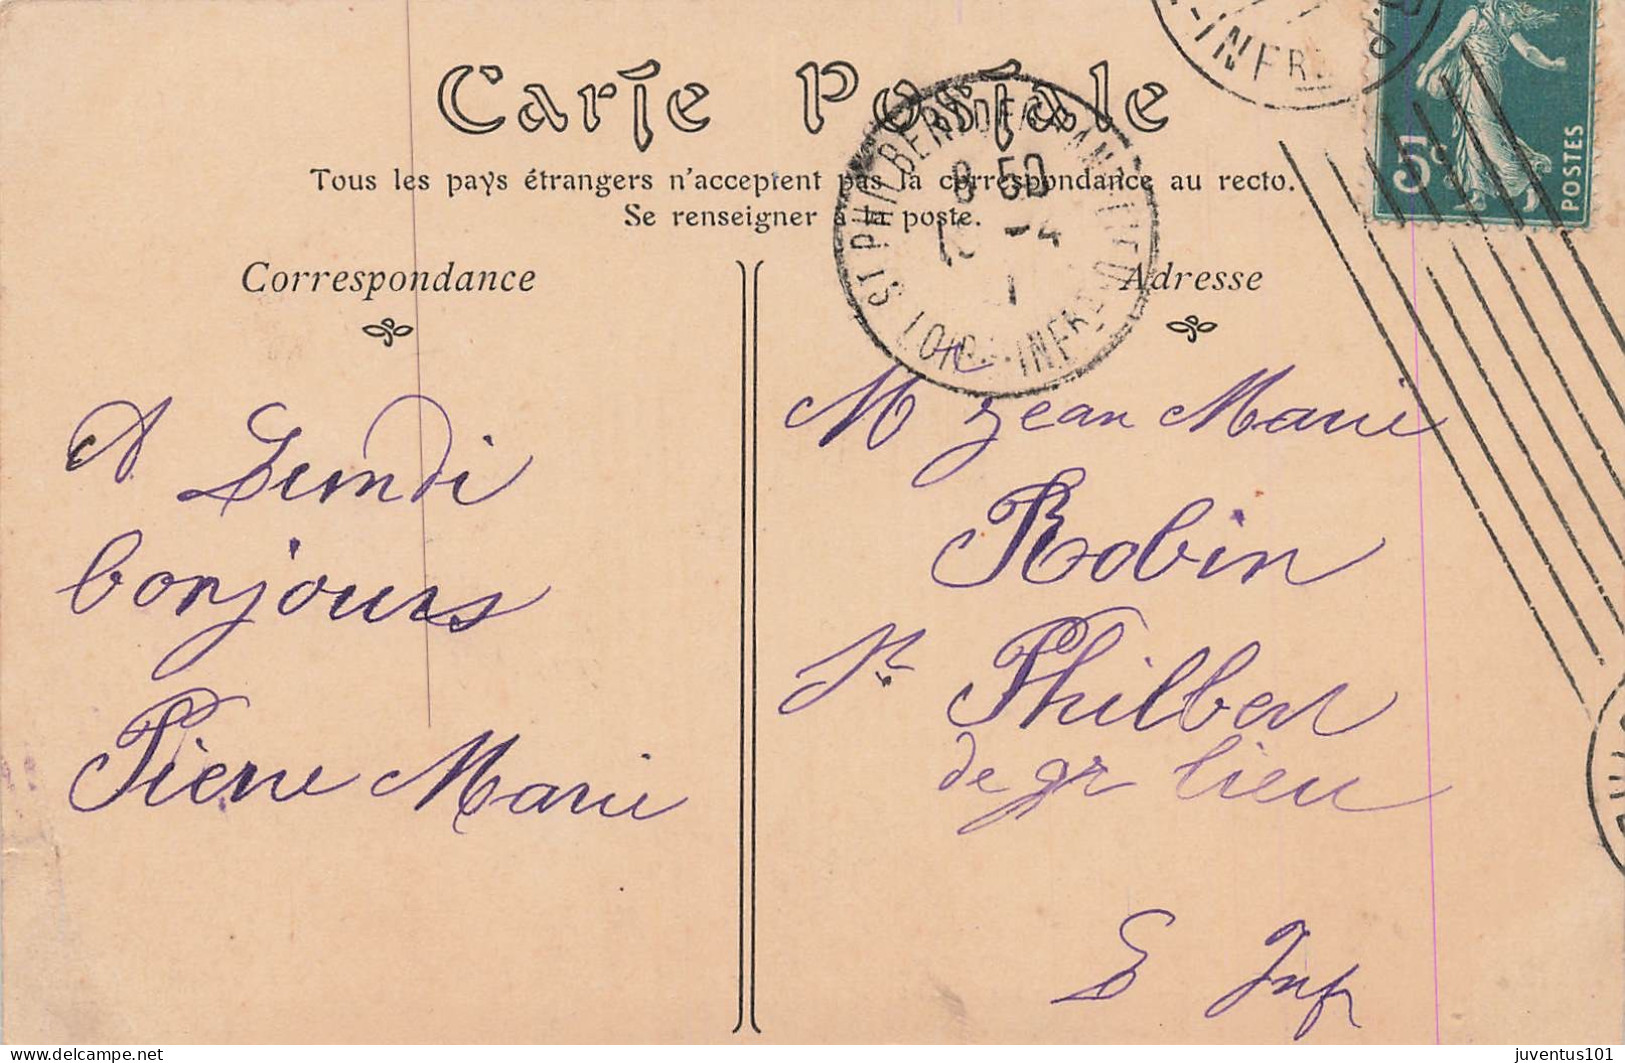 Carte Postale
Tous les pays étrangers n'acceptent pas la correspondance au recto.
Se renseigner à la poste.
Correspondance
Adresse
5c
POSTES
-INFRE
ST PHILBERT DE GRAND LIEU
8 50
-4
LOIRE-INFRE
A Lundi
bonjours
Pierre Marie
Mr Jean Marie
Robin
St Philbert
de gr lieu
L Inf
juventus101